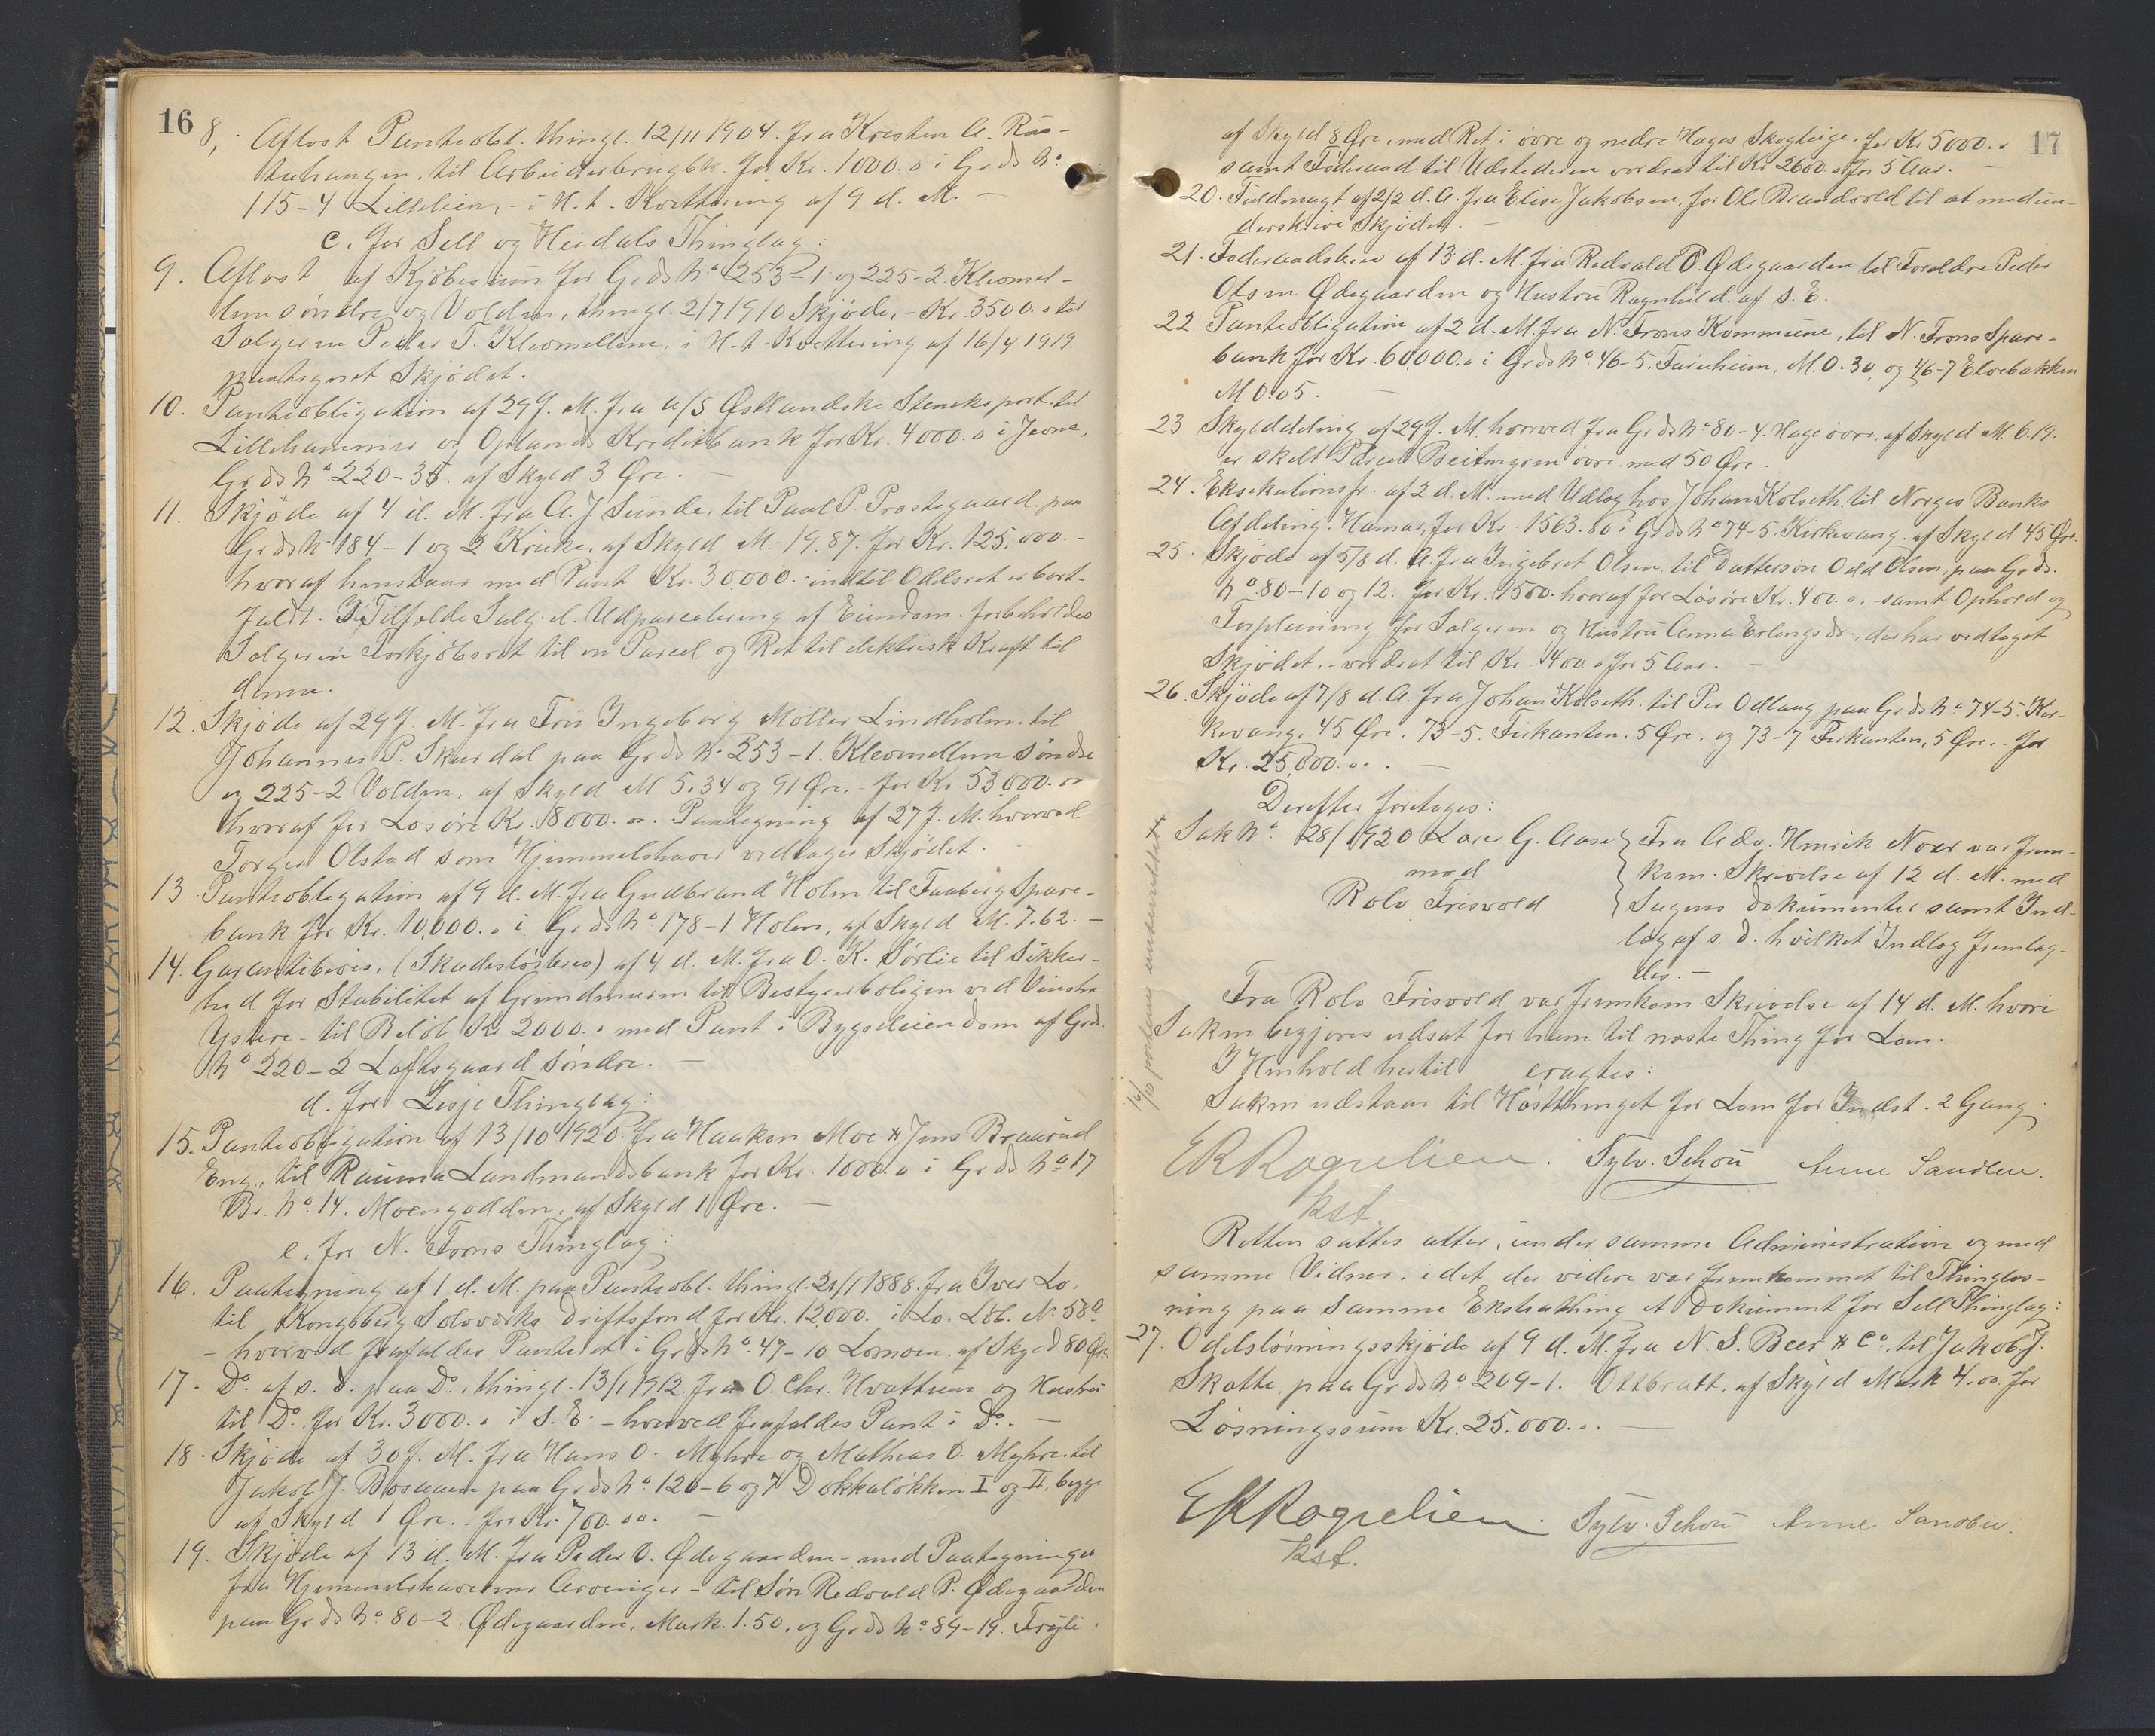 16
8, Aflöst Panteobl. thingl. 12/11 1904. fra Kristen A. Rus-
tuhangen, til Arbeiderbrugbk. for Kr. 1000.0 i Grds No
115-4 Lillelien, - i H. t. Kvittering af 9 d. M. -
c. for Sell og Heidals Thinglag:
9. Aflöst af Kjöbesum for Grds No 253-1 og 225-2. Kleomel-
lum söndre og Volden, thingl. 2/7 1910 Skjöde, - Kr. 3500.0 til
Sælgeren Peder T. Kleomellum, i H. t. Kvittering af 16/4 1919.
paategnet Skjödet.
10. Panteobligation af 29 f. M. fra A/S Østlandske Steneksport. til
Lillehammer og Oplands Kreditbank for Kr. 4000.0 i Jevne,
Grds No 220-35. af Skyld 3 Øre. -
11. Skjöde af 4 d. M. fra A. J. Sunde, til Paul P. Prostegaard, paa
Grds No 184-1 og 2 Kruke, af Skyld M. 19.87. for Kr. 125.000.-
hvoraf henstaar med Pant Kr. 30.000.- indtil Odelsret er bort-
faldt. I Tilfælde Salg el. Udparcelering af Eiendom. forbeholdes
Sælgeren Forkjöbsret til en Parcel og Ret til elektrisk Kraft til
denne.
12. Skjöde af 29 f. M. fra Fru Ingeborg Möller Lindholm. til
Johannes P. Skurdal paa Grds No 253-1. Kleomellum söndre
og 225-2 Volden, af Skyld M 5.34 og 91 Øre, - for Kr. 53.000.00
hvoraf for Lösöre Kr. 8000.00. Paategning af 27 f. M. hvorved
Torger Olstad som Hjemmelshaver vedtager Skjödet.
13. Panteobligation af 9 d. M. fra Gudbrand Holm til Faaberg Spare-
bank for Kr. 10.000.0 i Grds No 178-1 Holm, af Skyld M. 7.62. -
14. Garantibevis, (Skadeslösbrev) af 4 d. M. fra O. K. Sörlie til Sikker-
hed for Stabilitet af Grundmuren til Bestyrerboligen ved Vinstra
Ysteri - til Belöb Kr 2000.0 med Pant i Bygseleiendom af Grds.
No 220-2 Loftsgaard söndre. -
d. for Lesje Thinglag:
15. Panteobligation af 13/10 1920. fra Haakon Moe & Jens Braarud
Eng, til Rauma Landmandsbank for Kr. 1000.0 i Grds No 17
Br. No 14, Moengodden, af Skyld 1 Øre. -
e. for N. Frons Thinglag:
16. Paategning af 1 d. M. paa Panteobl. thingl. 21/1 1888. fra Iver Lo.
til Kongsberg Sölvværks Driftsfond for Kr. 12000. i Lo. Löb. No. 58a
- hvorved frafaldes Panteret i Grds No. 47-10 Lomoen. af Skyld 80 Øre.
17. Do. af s. D. paa Do. thingl. 13/1 1912. fra O. Chr. Hvattum og Hustru
til Do. for Kr. 3000.0 i s. E. - hvorved frafaldes Pant i Do. -
18. Skjöde af 30 f. M. fra Hans O. Myhre og Mathias O. Myhre. til
Jakob J. Bosaaen paa Grds No. 120-6 og 7 Dokkalökken I og II, begge
af Skyld 1 Øre. - for Kr. 700.00. -
19. Skjöde af 13 d. M. fra Peder O. Ødegaarden - med Paategninger
fra Hjemmelshaverens Arvinger - til Sön Redvald P. Ødegaarden
paa Grds No 80-2. Ødegaarden, Mark. 1.50, og Grds No 89-19. Fryli.
17
af Skyld 8 Øre, med Ret i övre og nedre Hages Skogteige. for Kr 5000.0
samt Föderaad til Udstederen værdsat til Kr 2600.0 for 5 Aar. -
20. Fuldmagt af 2/2 d. A. fra Elise Jakobsen, for Ole Brandvold til at medun-
derskrive Skjödet. -
21. Föderaadsbrev af 13 d. M. fra Redvald P. Ødegaarden til Forældre Peder
Olsen Ødegaarden og Hustru Ragnhild. af s. E.
22. Panteobligation af 2 d. M. fra N. Frons Kommune, til N. Frons Spare-
bank for Kr. 60.000.0 i Grds No. 46-5. Furuheim, M. 0.30 og 46-7 Elvebakken
M 0.05. -
23 Skylddeling af 29 f. M. hvorved fra Grds No 80-4. Hage övre, af Skyld M. 6.19.
er skilt Parcel Beitingsrm övre med 50 Øre.
24. Eksekutionsfr. af 2 d. M. med Udlæg hos Johan Kolseth. til Norges Banks
Afdeling. Hamar, for Kr. 1563.80 i Grds No 74-5. Kirkevang. af Skyld 45 Øre.
25. Skjöde af 5/8 d. A. fra Ingebret Olsen, til Dattersön Odd Olsen, paa Grds.
No. 80-10 og 12. for Kr. 1500. hvoraf for Lösöre Kr. 400.0. samt Ophold og
Forpleining for Sælgeren og Hustru Anna Erlingsdr., der har vedtaget
Skjödet, - værdsat til Kr. 400.0 for 5 Aar. -
26. Skjöde af 7/8 d. A. fra Johan Kolseth. til Per Odlaug paa Grds No 74-5. Kir-
kevang. 45 Øre, 73-5. Firkanten, 5 Øre, og 73-7 Firkanten, 5 Øre. for
Kr. 25.000.00. -
Derefter foretoges:
Sak No. 28/1920 Lars G. Aase } Fra Adv. Henrik Noer var frem-
mod } kom. Skrivelse af 12 d. M. med
Rolv Frisvold } Sagens dokumenter samt Ind-
læg af s. D. hvilket Indlæg fremlag-
des. -
Fra Rolv Frisvold var fremkom. Skrivelse af 14 d. M. hvori
Saken begjæres udsat for ham til næste Thing for Lom.
I Henhold hertil eragtes:
Saken udstaar til Höstthinget for Lom for Indst. 2 Gang.
16/10 partene underrettet
ERRognelien. Sylv. Schou Anne Sandbu.
kst.
Retten sattes atter, under samme Administration og med
samme Vidner, idet der videre var fremkommet til Thinglæs-
ning paa samme Ekstrathing et Dokument for Sell Thinglag:
27. Odelslösningsskjöde af 9 d. M. fra N. S. Beer & Co. til Jakob J.
Skotte, paa Grds No 209-1. Ottbratt, af Skyld Mark 4.00. for
Lösningssum Kr. 25.000.0. -
ERRognelien. Sylv. Schou Anne Sandbu.
kst.